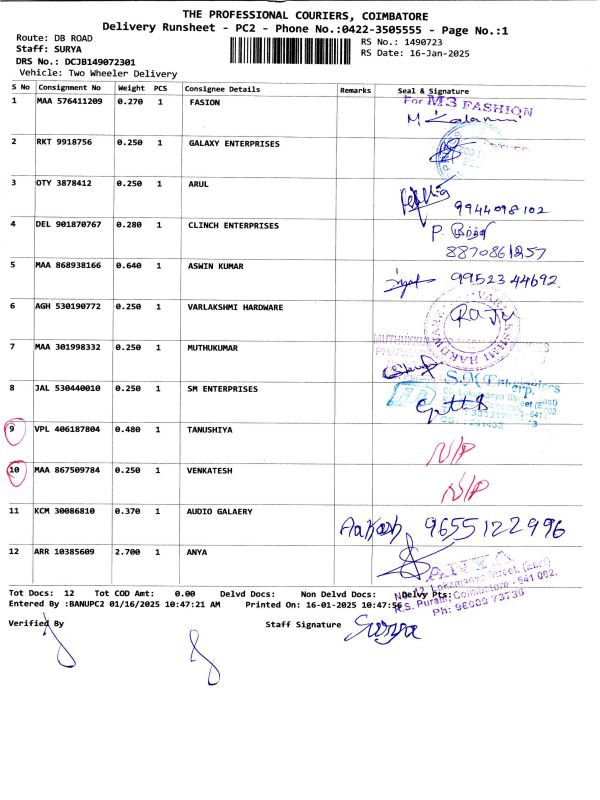 THE PROFESSIONAL COURIERS, COIMBATORE
Delivery Runsheet - PC2 - Phone No.:0422-3505555 - Page No.:1
Route: DB ROAD
RS No.: 1490723
Staff: SURYA
RS Date: 16-Jan-2025
DRS No.: DCJB149072301
Vehicle: Two Wheeler Delivery
S No Consignment No Weight PCS Consignee Details Remarks Seal & Signature
1 MAA 576411209 0.270 1 FASION For M3 FASHION
2 RKT 9918756 0.250 1 GALAXY ENTERPRISES
3 OTY 3878412 0.250 1 ARUL
9944098102
4 DEL 901870767 0.280 1 CLINCH ENTERPRISES P.
8870861257
5 MAA 868938166 0.640 1 ASWIN KUMAR 9952344692.
6 AGH 530190772 0.250 1 VARLAKSHMI HARDWARE RAJU
7 MAA 301998332 0.250 1 MUTHUKUMAR
8 JAL 530440010 0.250 1 SM ENTERPRISES
9 VPL 406187804 0.480 1 TANUSHIYA N/P
10 MAA 867509784 0.250 1 VENKATESH N/P
11 KCM 30086810 0.370 1 AUDIO GALAERY Aakash 9655122996
12 ARR 10385609 2.700 1 ANYA ANYA
Lokamanya Street, (East)
R.S. Puram, Coimbatore - 641 002.
Ph: 96003 73736
Tot Docs: 12 Tot COD Amt: 0.00 Delvd Docs: Non Delvd Docs: Delvy Pts:
Entered By :BANUPC2 01/16/2025 10:47:21 AM Printed On: 16-01-2025 10:47:56
Verified By Staff Signature Surya